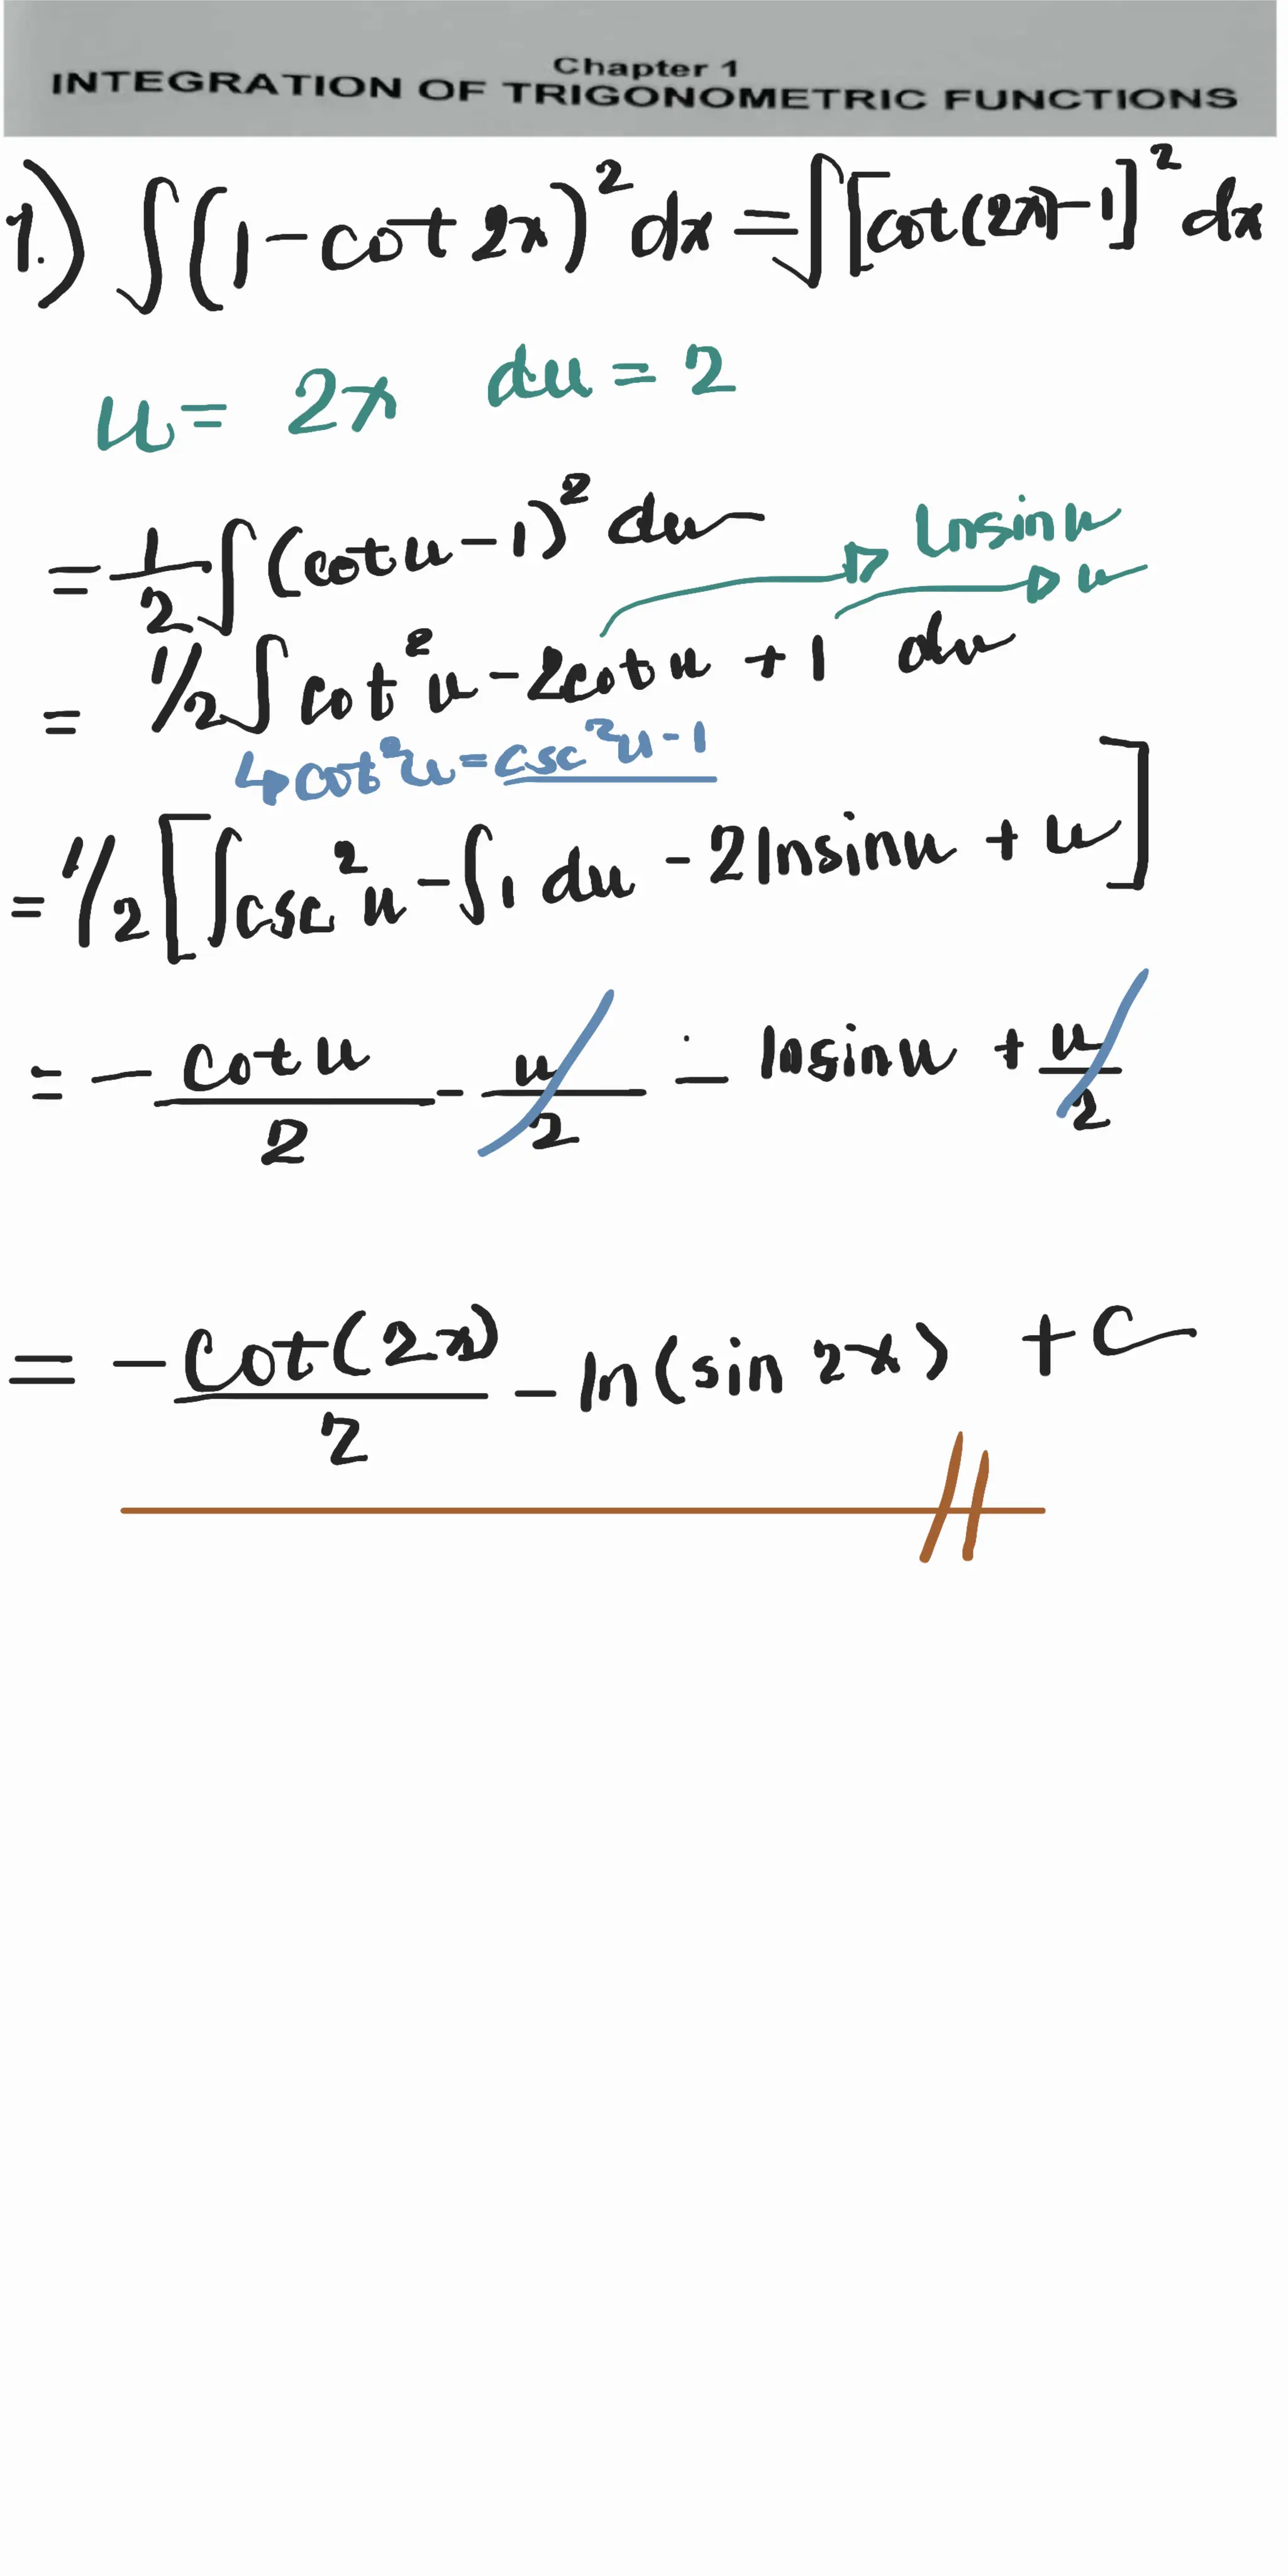 Chapter 1
INTEGRATION OF TRIGONOMETRIC FUNCTIONS
1.) ∫(1-cot 2x)² dx = ∫[cot(2x)-1]² dx
u = 2x du = 2
= 1/2 ∫(cot u - 1)² du lnsin u
u
= 1/2 ∫ cot² u - 2cot u + 1 du
↳ cot² u = csc² u - 1
= 1/2 [∫csc² u - ∫1 du - 2lnsinu + u]
= - cot u/2 - u/2 - lnsinu + u/2
= - cot(2x)/2 - ln(sin 2x) + C